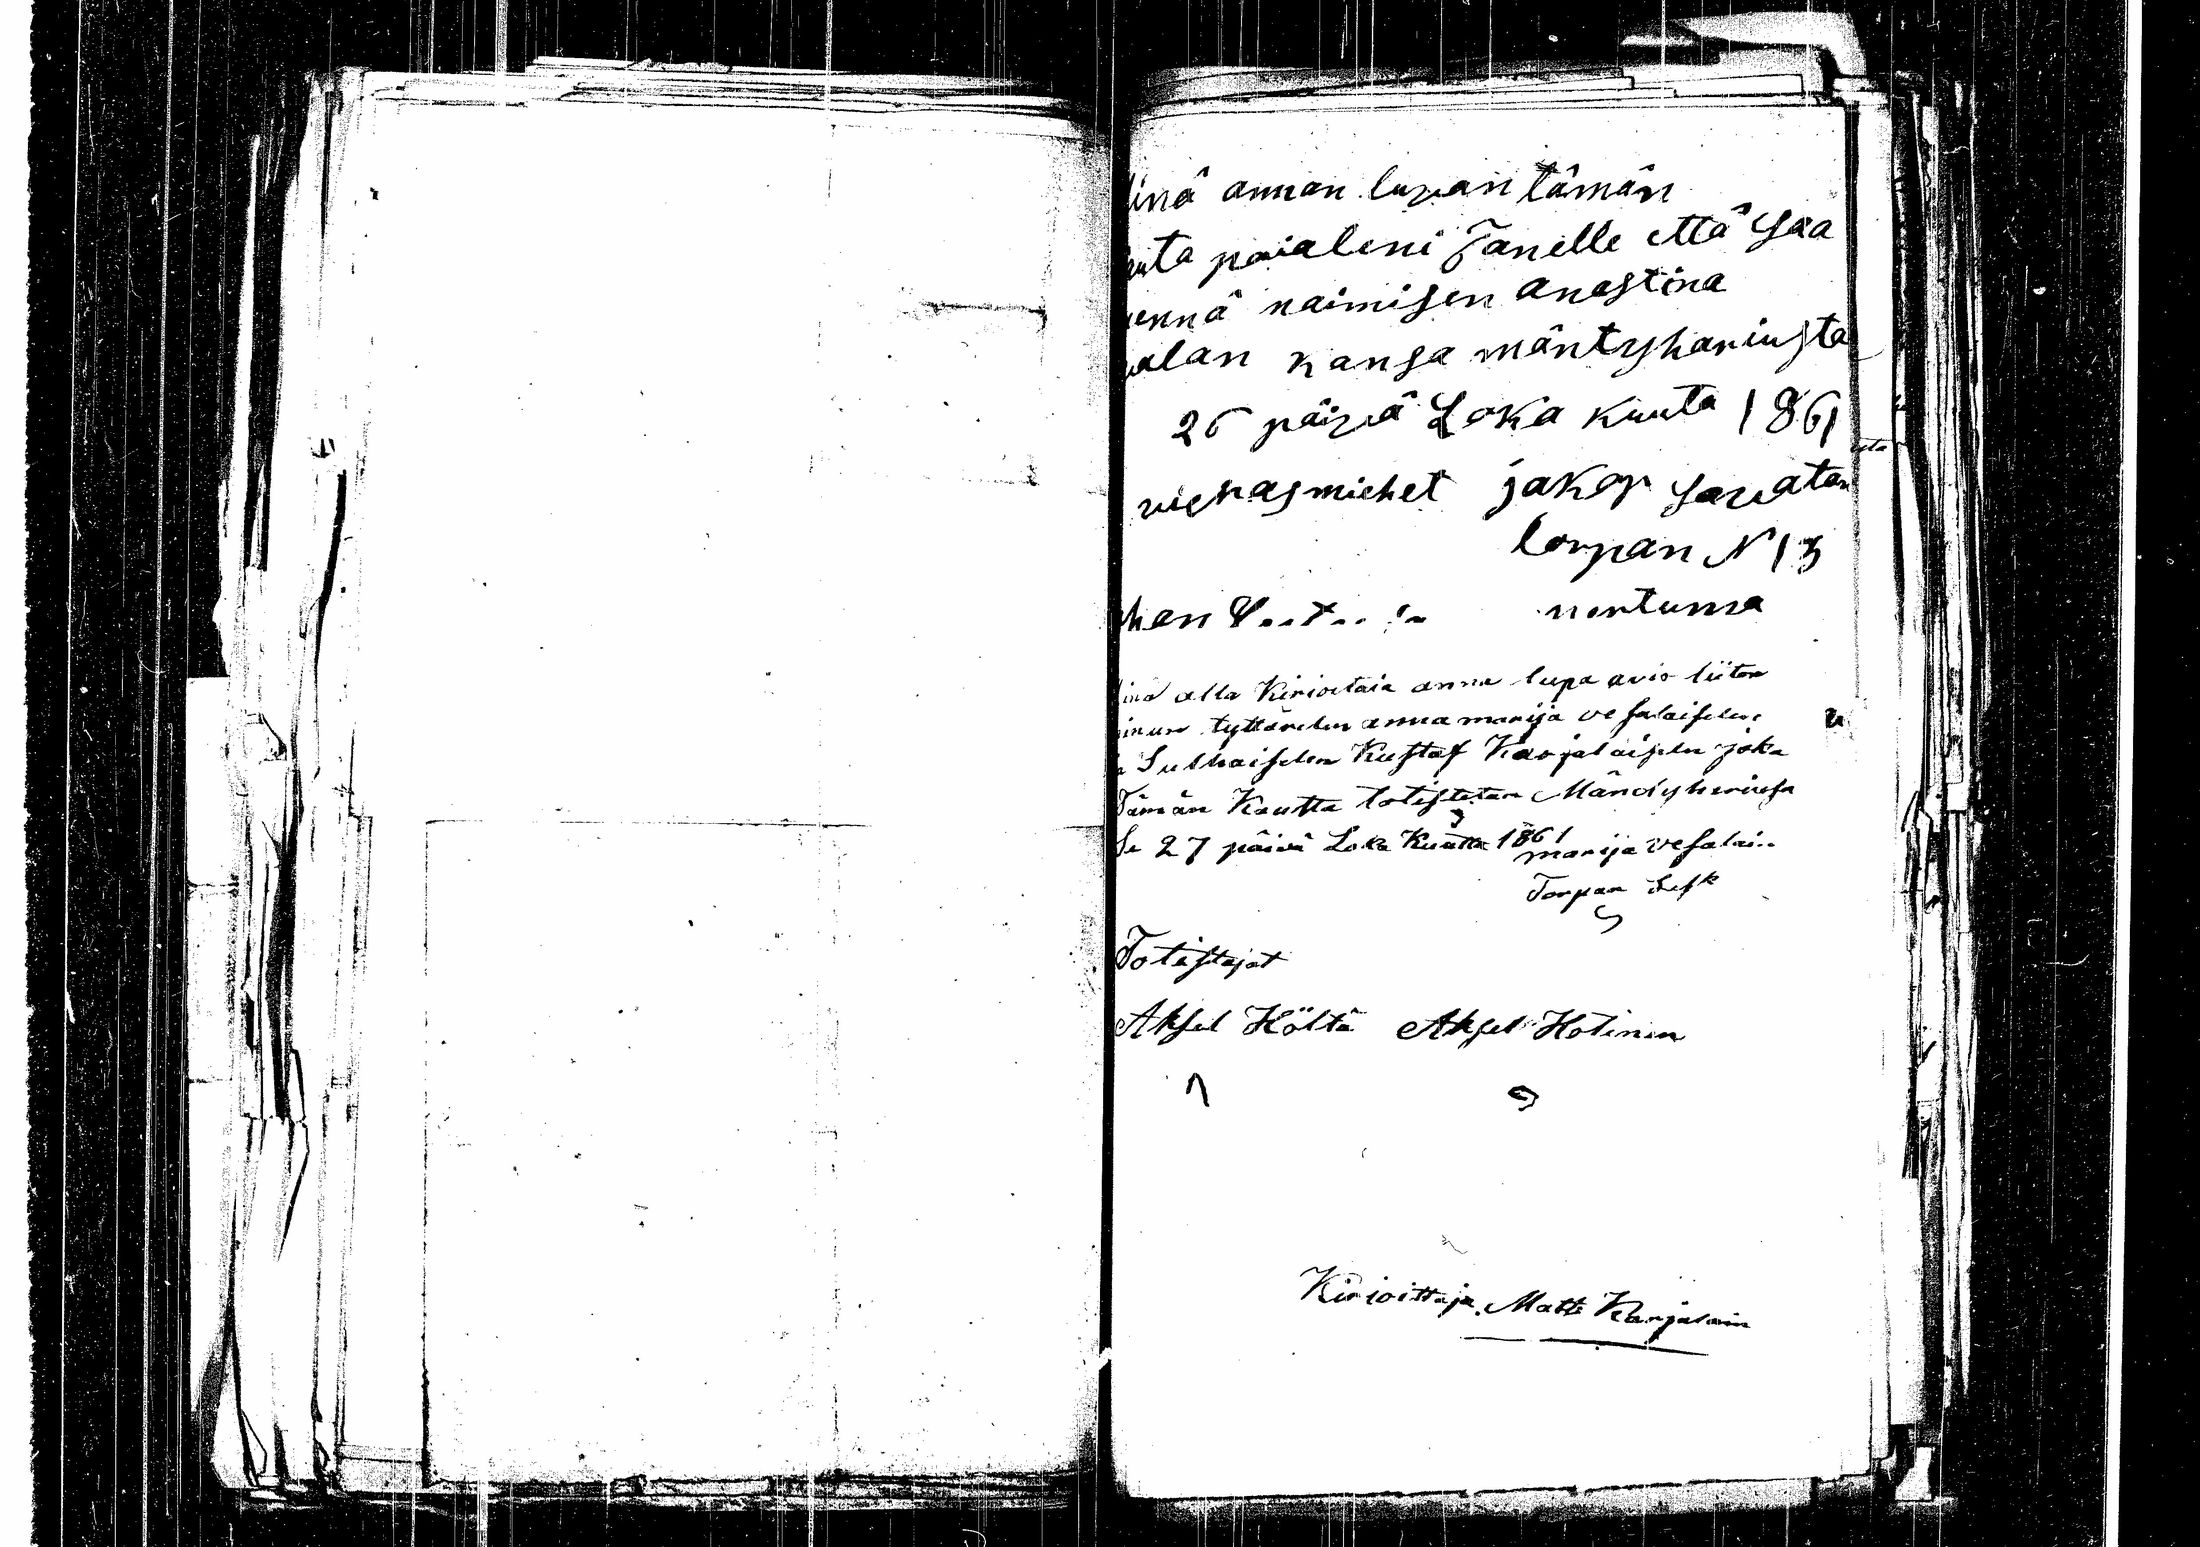 inä annan luvan tämän
uta poialeni Janelle että saa
ennä naimisen anastina
alan kansa mäntyhariusta
26 päivä Loka kuuta 1861
vierasmiehet jakop savatan
lorpan N 13
han nontunna
inä alla Kiriottaia anna lupa avio liiton
inun tyttärelen anna marija vesalaiselen
Sulhaiselen Kustaf Karjalaiselen joka
Tämän Kautta totistetan Mändyhariusa
Se 27 päivä Loka Kuuta 1861
marija vesalain
Torpan Lesk
Totistajat
Aksel Höltä Aksel Hotinen
Kirioittaja Matti Karjalain